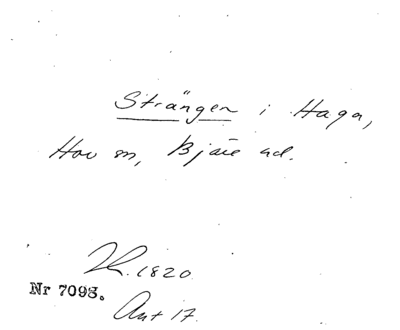 Strängen i Haga,
Hov sn, Bjäre hd.
1820
Nr 7098.
Ant 17.